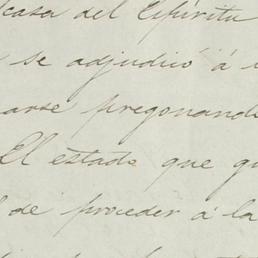 casa del Espíritu
se adjudicó á
arse pregonand
El estado que qu
de proceder á la